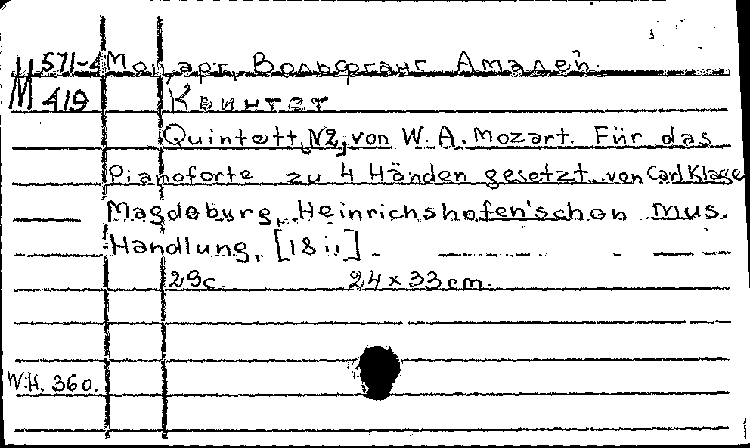 571-4 Моцарт, Вольфганг Амадей.
М 419 Квинтет
Quintett, N2, von W. A. Mozart. Für das
Pianoforte zu 4 Händen gesetzt von Carl Klage
Magdeburg, Heinrichshofen'schen Mus.
Handlung,
29c. 24 x 33 cm.
W.H. 360.